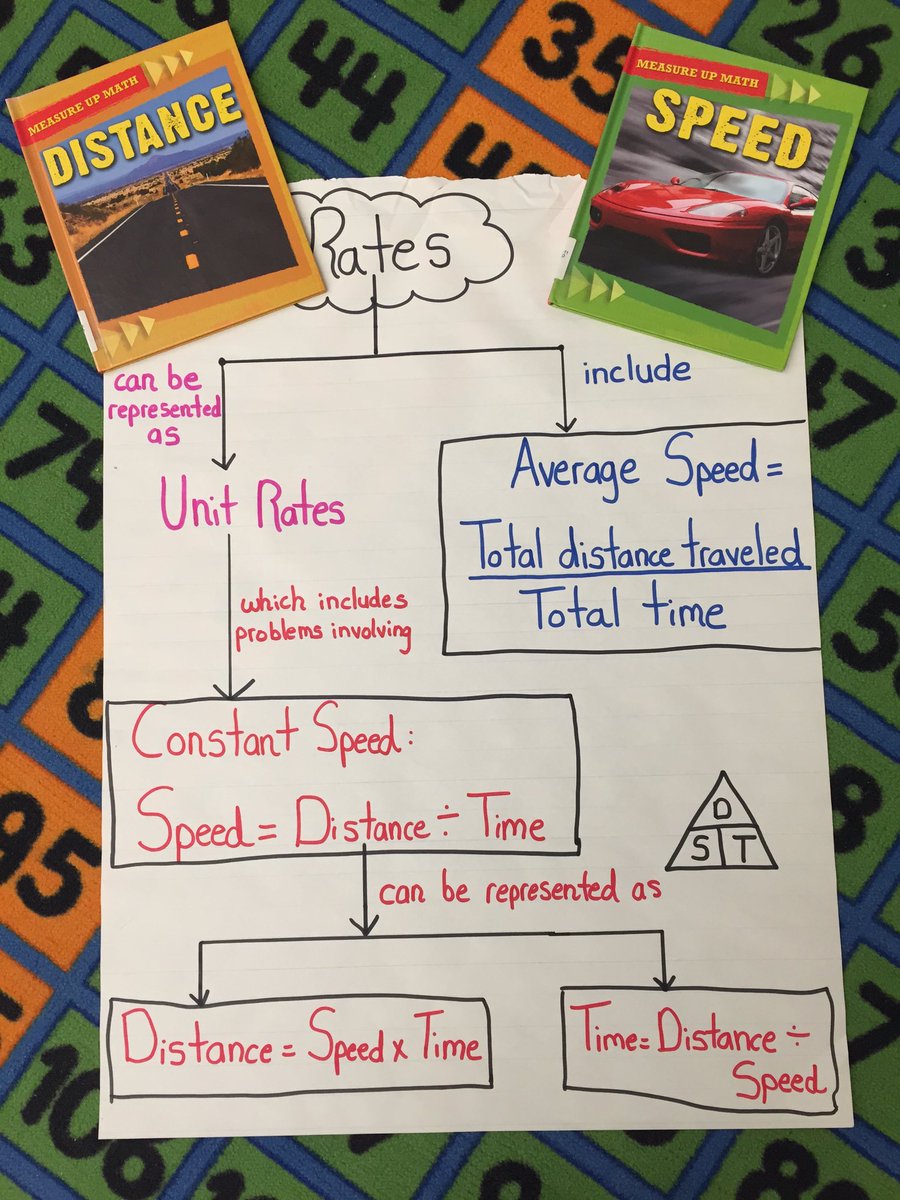 MEASURE UP MATH
DISTANCE
MEASURE UP MATH
SPEED
44
35
26
Rates
can be
represented
as
include
Unit Rates
Average Speed =
Total distance traveled
Total time
which includes
problems involving
Constant Speed:
Speed = Distance ÷ Time
D
S T
can be represented as
Distance = Speed x Time
Time = Distance ÷
Speed
74
47
95
106